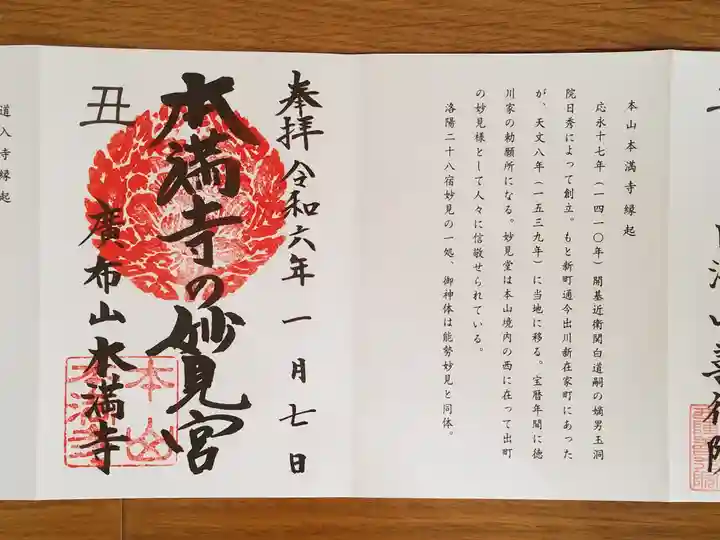 本山本満寺縁起
応永十七年（一四一〇年）開基近衛関白道嗣の嫡男玉洞
院日秀によって創立。もと新町通今出川新在家町にあった
が、天文八年（一五三九年）に当地に移る。宝暦年間に徳
川家の勅願所になる。妙見堂は本山境内の西に在って出町
の妙見様として人々に信敬せられている。
洛陽二十八宿妙見の一処、御神体は能勢妙見と同体。
奉拝 令和六年一月七日
本満寺の妙見宮
丑
廣布山本満寺
道入寺縁起